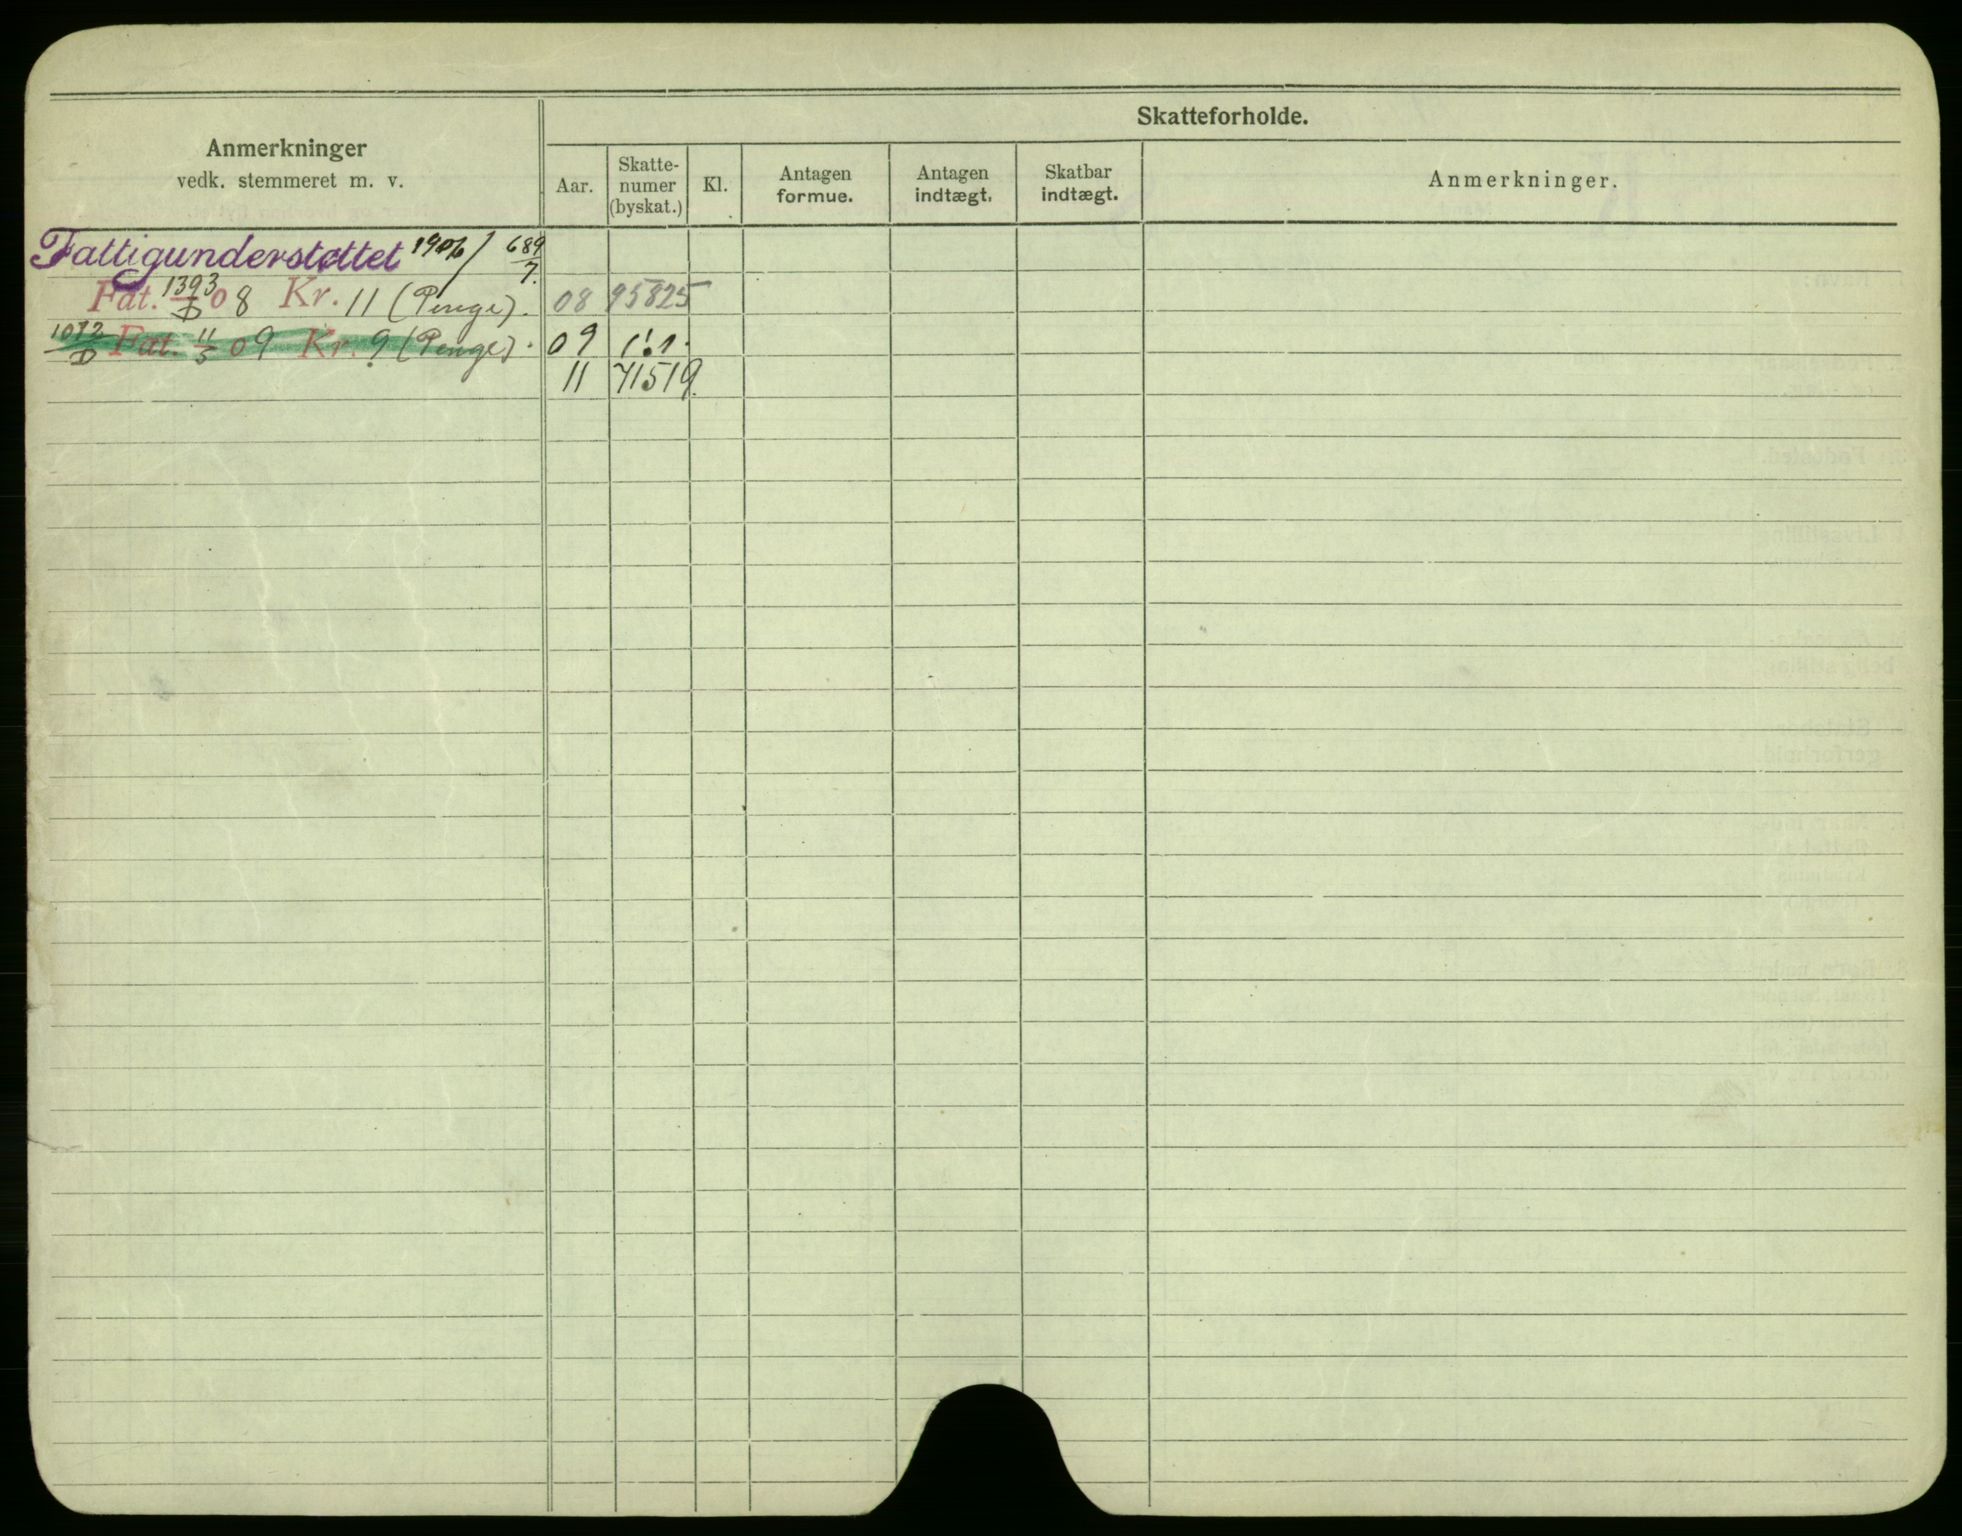 Skatteforholde.
Anmerkninger
vedk. stemmeret m. v.
Aar.
Skatte-
numer
(byskat.)
Kl.
Antagen
formue.
Antagen
indtægt.
Skatbar
indtægt.
Anmerkninger.
Fattigunderstøttet 1906/ 689/7.
Fat. 1393/D 08 Kr. 11 (Penge). 08 95825
1072/D Fat. 11/5 09 Kr. 9 (Penge). 09
11 71519